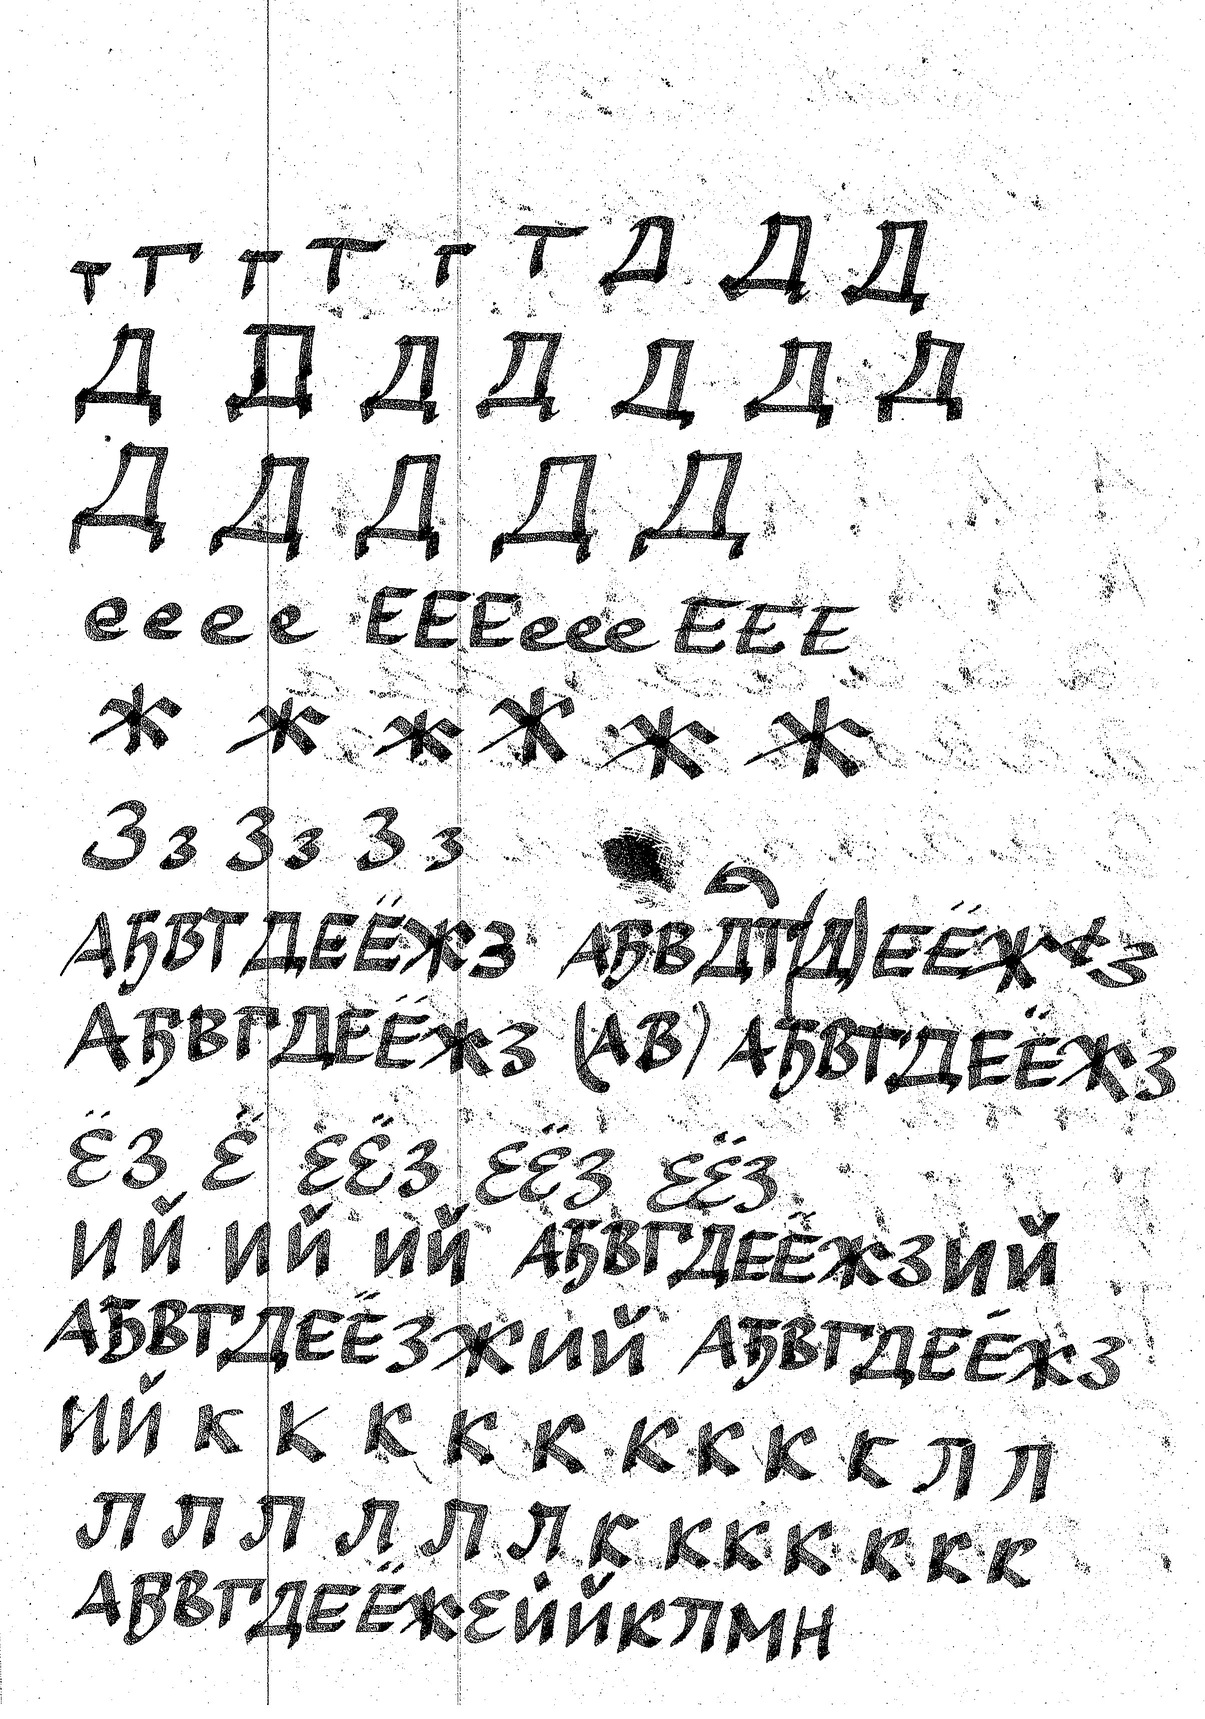 т Г г Т г Т Д Д Д
Д Д Д Д Д Д Д
Д Д Д Д Д
е е е е ЕЕЕеее ЕЕЕ
Ж Ж Ж Ж Ж Ж
З з З з З з
АБВГДЕЁЖЗ АБВДГ(Д)ЕЁЖЗ
АБВГДЕЁЖЗ (АВ) АБВГДЕЁЖЗ
ЁЗ Ё ЕЁЗ ЕЁЗ ЕЁЗ
ИЙ ИЙ ИЙ АБВГДЕЁЖЗИЙ
АБВГДЕЁЗЖИЙ АБВГДЕЁЖЗ
ИЙ К К К К К К К К К Л Л
Л Л Л Л Л Л К К К К К К К
АБВГДЕЁЖЕИЙКЛМН